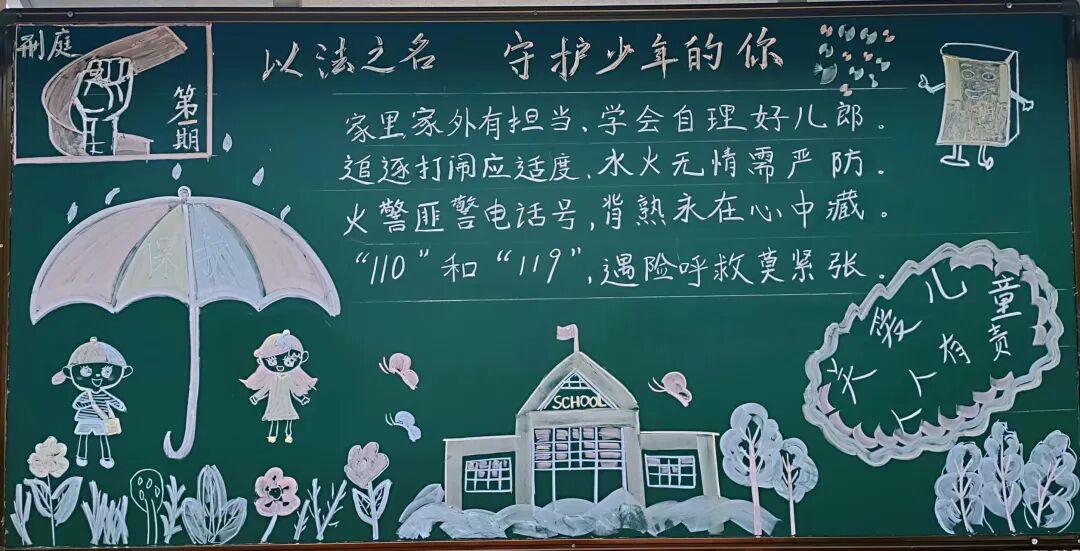 刑庭
第一期
以法之名 守护少年的你
家里家外有担当、学会自理好儿郎。
追逐打闹应适度、水火无情需严防。
火警匪警电话号，背熟永在心中藏。
“110”和“119”，遇险呼救莫紧张。
保护
关爱儿童
人人有责
SCHOOL